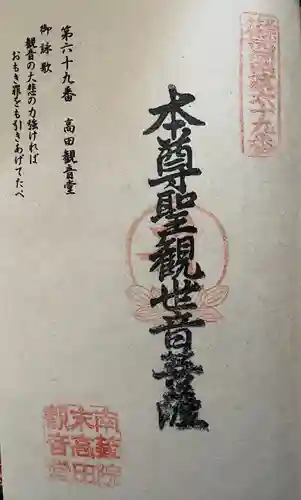 本尊聖観世音菩薩
第六十九番　高田観音堂
御詠歌
観音の大悲の力強ければ
おもき罪をも引きあげてたべ
南蔵院
末高田
観音堂